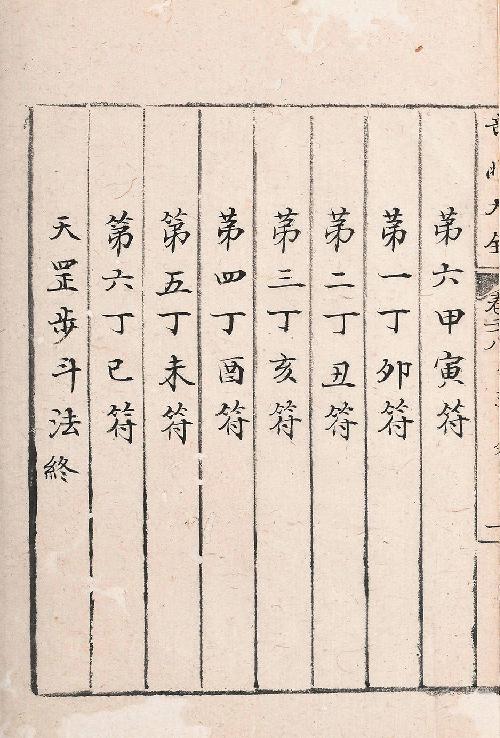 第六甲寅符
第一丁卯符
第二丁丑符
第三丁亥符
第四丁酉符
第五丁未符
第六丁巳符
天罡步斗法終